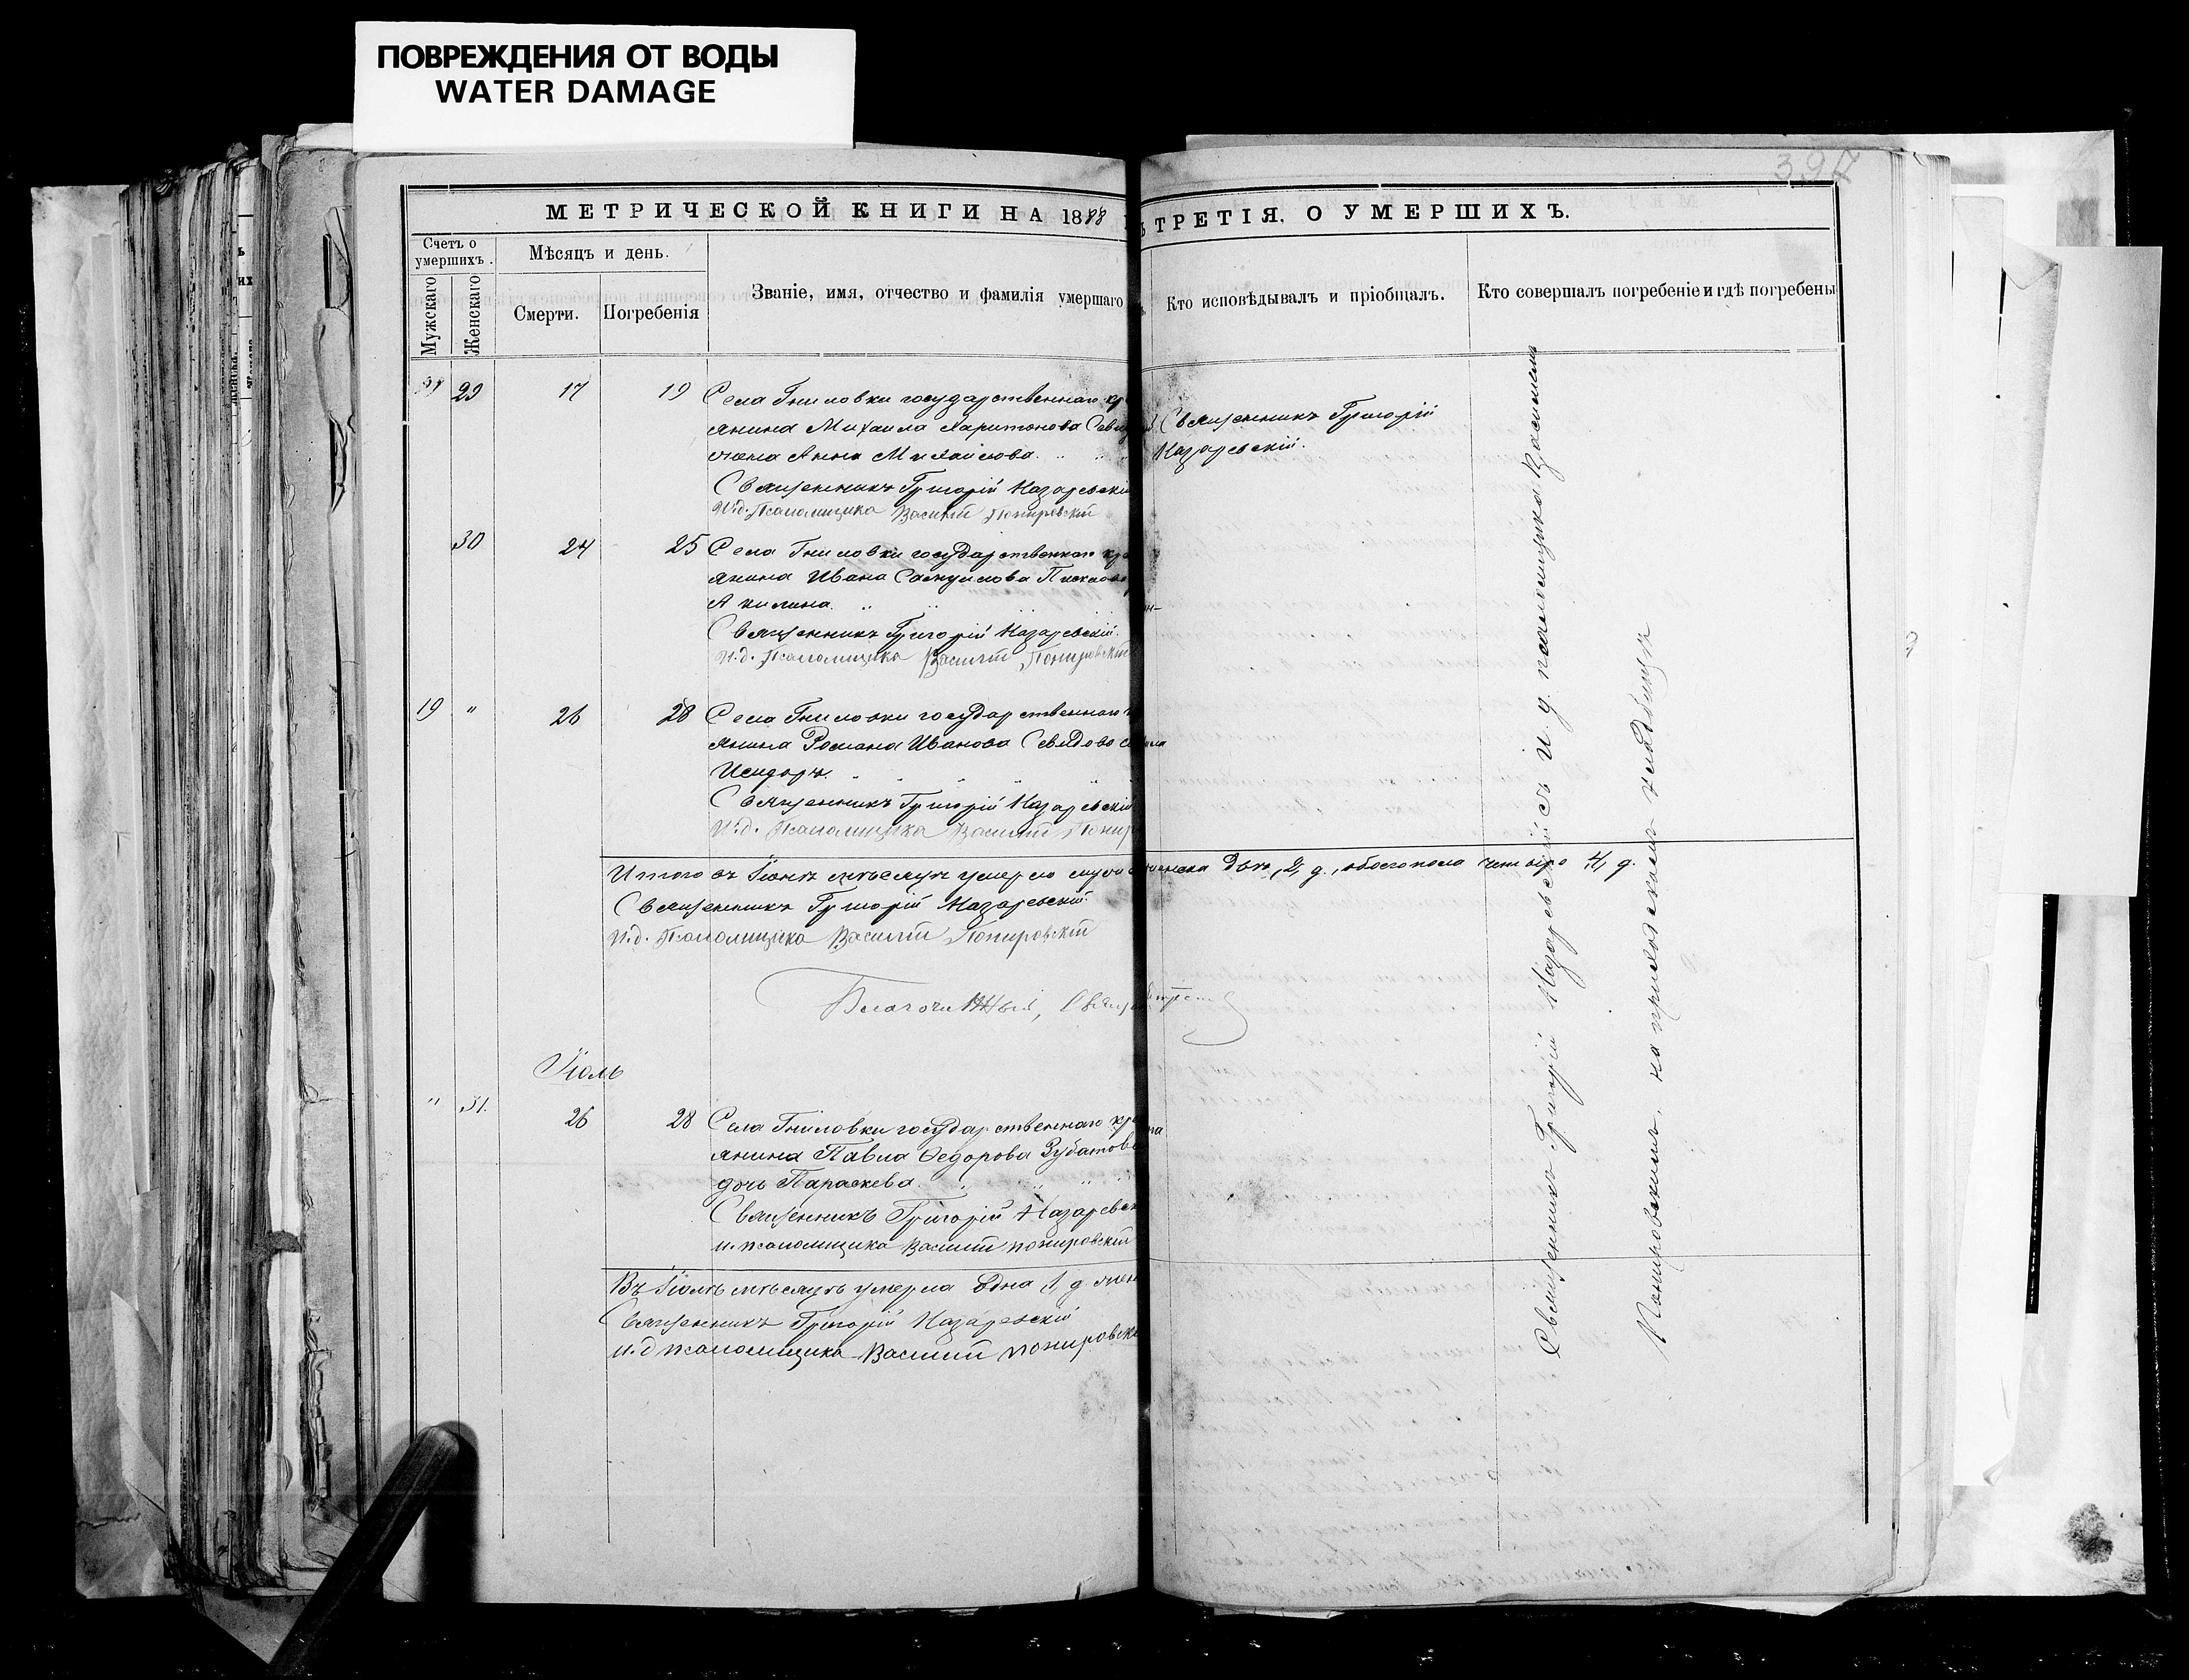 ПОВРЕЖДЕНИЯ ОТ ВОДЫ
WATER DAMAGE
МЕТРИЧЕСКОЙ КНИГИ НА 1888
ТРЕТІЯ, О УМЕРШИХЪ.
Счетъ о умершихъ.
Мѣсяцъ и день.
Мужскаго
Женскаго
Смерти.
Погребенія
Званіе, имя, отчество и фамилія умершаго
Кто исповѣдывалъ и пріобщалъ.
Кто совершалъ погребеніе и гдѣ погребены
29 17 19 Села Гниловки государственнаго кр
янина Михаила Харитонова
жена Анна Михайлова
Священникъ Григорій Назаревскій
И.д. Псаломщика Василій Понировскій
Священникъ Григорій
Назаревскій.
30 24 25 Села Гниловки государственнаго кре
янина Ивана
Акилина
Священникъ Григорій Назаревскій.
И.д. Псаломщика Василій Понировскій
19 " 26 28 Села Гниловки государственнаго
янина Романа Иванова
Исидоръ.
Священникъ Григорій Назаревскій
И.д. Псаломщика Василій Понир
Итого въ Іюнѣ мѣсяцѣ умерло муж
женска двѣ, 2, д., обоего пола четыре 4, д.
Священникъ Григорій Назаревскій.
И.д. Псаломщика Василій Понировскій
Благочинный, Священ
Іюль
" 31. 26 28 Села Гниловки государственнаго кре
янина Павла Ѳедорова Зубатова
дочь Параскева.
Священникъ Григорій Назаревск
и. псаломщика Василій Понировскій
Въ Іюлѣ мѣсяцѣ умерла одна 1 д жен
Священникъ Григорій Назаревскій
и.д псаломщика Василій Понировск
Священникъ Григорій Назаревскій съ И. д. псаломщика Василіемъ
Понировскимъ, на приходскомъ кладбищѣ